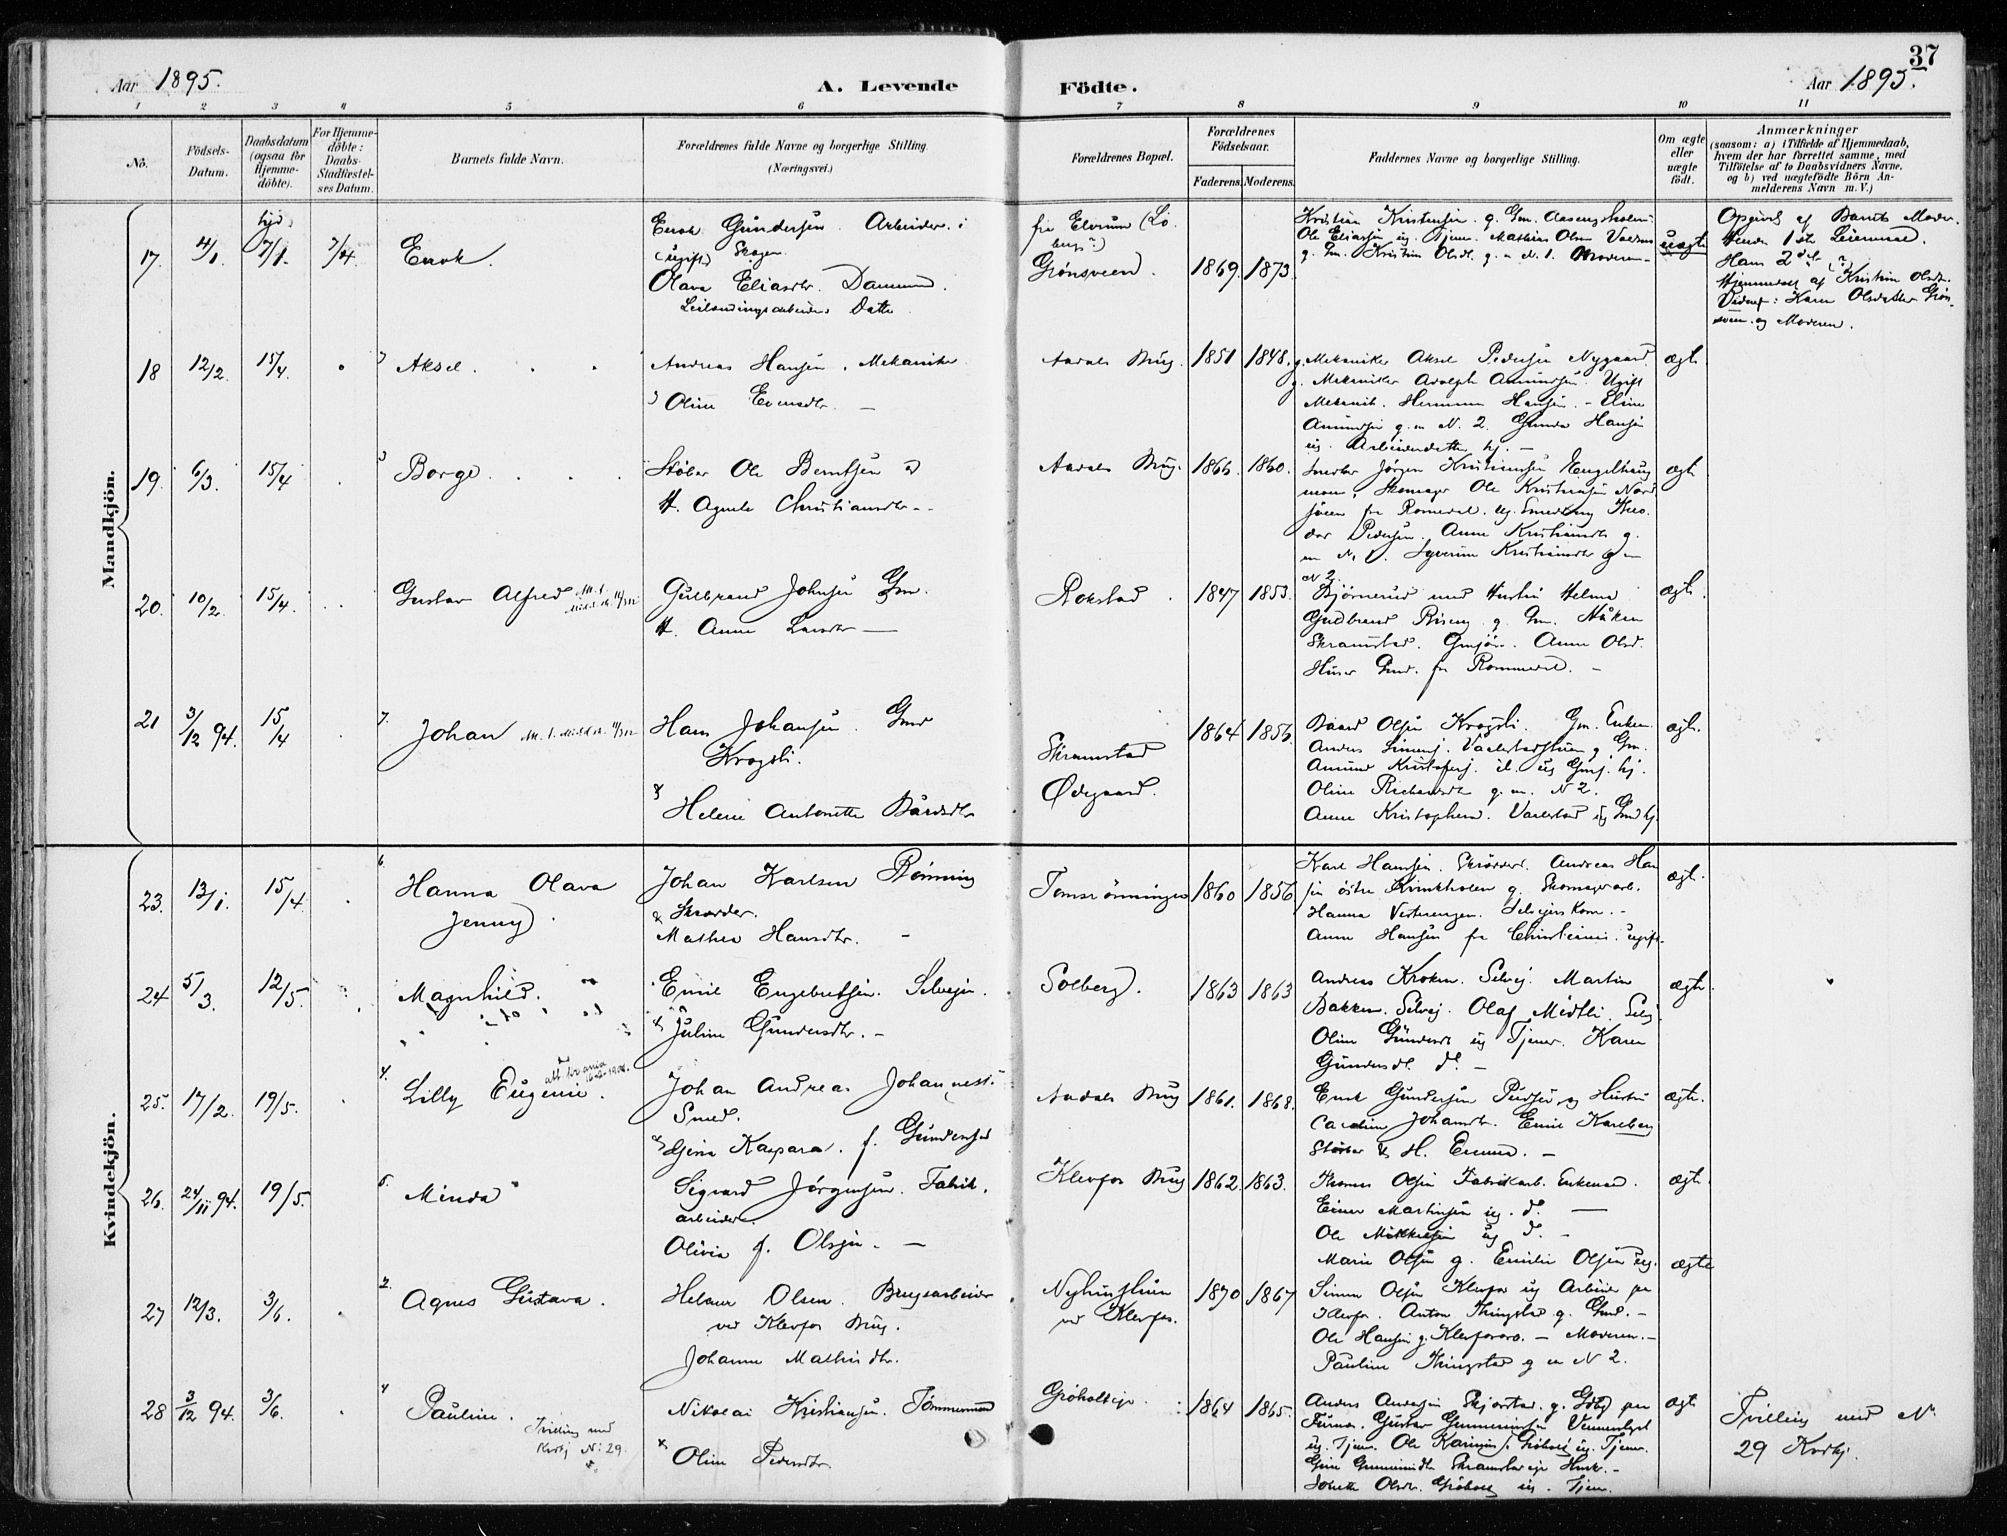 37
Aar 1895.
A. Levende
Födte.
Aar 1895.
1 2 3 4 5 6 7 8 9 10 11
No.
Födsels-Datum.
Daabsdatum (ogsaa for Hjemme-döbte).
For Hjemme-döbte: Daabs-Stadfæstel-ses Datum.
Barnets fulde Navn.
Forældrenes fulde Navne og borgerlige Stilling. (Næringsvei.)
Forældrenes Bopæl.
Forældrenes Födselsaar.
Faderens. Moderens.
Faddernes Navne og borgerlige Stilling.
Om ægte eller uægte födt.
Anmærkninger
(saasom: a) i Tilfælde af Hjemmedaab, hvem der har forrettet samme, med Tilföielse af to Daabsvidners Navne, og b) ved uægtefödte Börn An-melderens Navn m. V.)
Mandkjön.
17. 4/1. hjd. 7/1. 7/4. Enok.
Enok Gundersen. Arbeider i
(ugift) Skogen
Olava Eliasdtr. Dammend.
Datter
fra Elverum
Grønsveen. 1869. 1873.
Kristian Kristensen. g. Gm. Aasengsholm
Ole Eliassen ug. Tjen. Mathias Olsen
g. Gm. Kristine Olsdt. g. m. N. 1. Moderen
uægte
Opgivet af Barnets Moder.
Hendes 1ste Leiermaal.
Hans 2det (?)
Hjemmedøbt af Kristine Olsdtr.
Vidner: Karen Olsdatter Grøn-
sveen og Moderen.
18 12/2. 15/4. Aksel.
Andreas Hansen. Mekaniker
Oline Evensdtr. —
Aadals Brug. 1851 1848.
g. Mekaniker Aksel Pedersen Nygaard
g. Mekaniker Adolph Amundsen. Ugift
Mekanik. Herman Hansen. - Eline
Amundsen g. m N. 2. Gunda Hansen
ug. Arbeiderdatter hj. —
ægte
19. 6/3. 15/4 Borge.
Støber Ole Berntsen &
H. Agnete Christiansdtr - -
Aadals Brug. 1866. 1860.
Jørgen Kristiansen Engelhaug
Skomager Ole Kristiansen Nord
fra Romedal. ug. Theo-
dor Pedersen. Anne Kristiansdtr g.
m N. 1. Syverine Kristiansdtr g m
N 2.
ægte
20. 10/2. 15/4. Gustav Alfred
Gulbrand Johnsen Gm.
H. Anne Larsdtr —
Rokstad. 1847 1853.
Bjørnerud med Hustru Helene
Gudbrand Biseng g. Gm. Håken
Skramstad. Gmsjøn. Anne Olsd.
Huser Gmd. fra Rommedal. -
ægte.
21 3/12 94. 15/4 Johan
Hans Johansen. Gmd
Krogsli.
& Helene Antonette Bårdsdtr
Skramstad
Ødegaard. 1864 1856.
Baard Olsen Krogsli. Gm. Enkem.
Anders Simens. Vaalerstadstuen g Gm.
Amund Kristofers. d. ug Gmsj. hj.
Oline g. m. N 2.
Anne Kristophers. Vaalerstad ug Gmd hj.
ægte.
Kvindekjön.
23. 13/1. 15/4. Hanna Olava
Jenny.
Johan Karlsen Rönning
Skrædder.
& Mathea Hansdtr. -
Tomsrönningen 1860 1856.
Karl Hansen. Skrædderl. Andreas Han-
sen östre Krinkholen g. Skomagerarb.
Hanna Vesterengen. Selvejers Kone. -
Anne Hansen fra Christiania. ugift.
ægte.
24 5/3. 12/5. Magnhild.
Emil Engebretsen. Selvejer.
& Juline Gundersdtr. -
Solberg. 1863 1863
Andreas Kroken. Selvej. Martin
Bakken. Selvej. Olaf Midtli. Selvj.
Oline Gundersdt ug Tjener. Karen
Gundersdt. d. -
ægte.
25. 17/2. 19/5. Lilly Eugenie.
Johan Andreas Johanness.
Smed.
& Gina Kaspara. f. Gundersen
Aadals Brug 1861. 1868.
Enok Gundersen Pudser og Hustru
Caroline Johansdtr. Emil Karlberg
Støber & H. Emma. -
ægte.
26. 24/11 94. 19/5. Minda
Sigvard Jörgensen. Fabrik-
arbeider.
Olivia f. Olsen. —
Klevfos Brug 1862. 1863.
Thomas Olsen Fabrikarb. Enkemand.
Einar Martinsen ug. d. —
Ole Mikkelsen ug d. -
Marie Olsen g. Emilie Olsen ug.
ægte
27 12/3. 3/6. Agnes Gustava.
Helmer Olsen. Brugsarbeider
ved Klevfos Brug.
Johanne Mathisdtr.
Nyhusstuen
ved Klevfos. 1870 1867
Simen Olsen Klevfos ug Arbeider paa
Klevfos. Anton Thingstad g. Gmd. -
Ole Hansen g. Klevfosarb. - Moderen. -
Pauline Thingstad g m N 2.
ægte
28 3/12 94. 3/6. Pauline.
Tvilling med
Kvkj N: 29.
Nikolai Kristiansen. Tømmermand
& Oline Pedersdtr.
Grøholteje. 1864 1865.
Anders Andersen Skjørstad. g. Gbr paa
Furnes. Gustav Gunnerius­sen Vennerslyst
ug. Tjen. Ole Karinius Grøholt ug. Tjener.
Gina Gunneriusdtr Skramstadeje Husk. -
Jonette Olsdtr. Grøholt ug. Tjen.
ægte
Tvilling med N:
29 Kvkj.